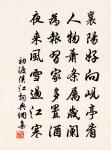 襄陽好向峴亭看
人物蕭條屬歲闌
為報習家多置酒
夜來風雪過江寒
初渡漢江詞典網集